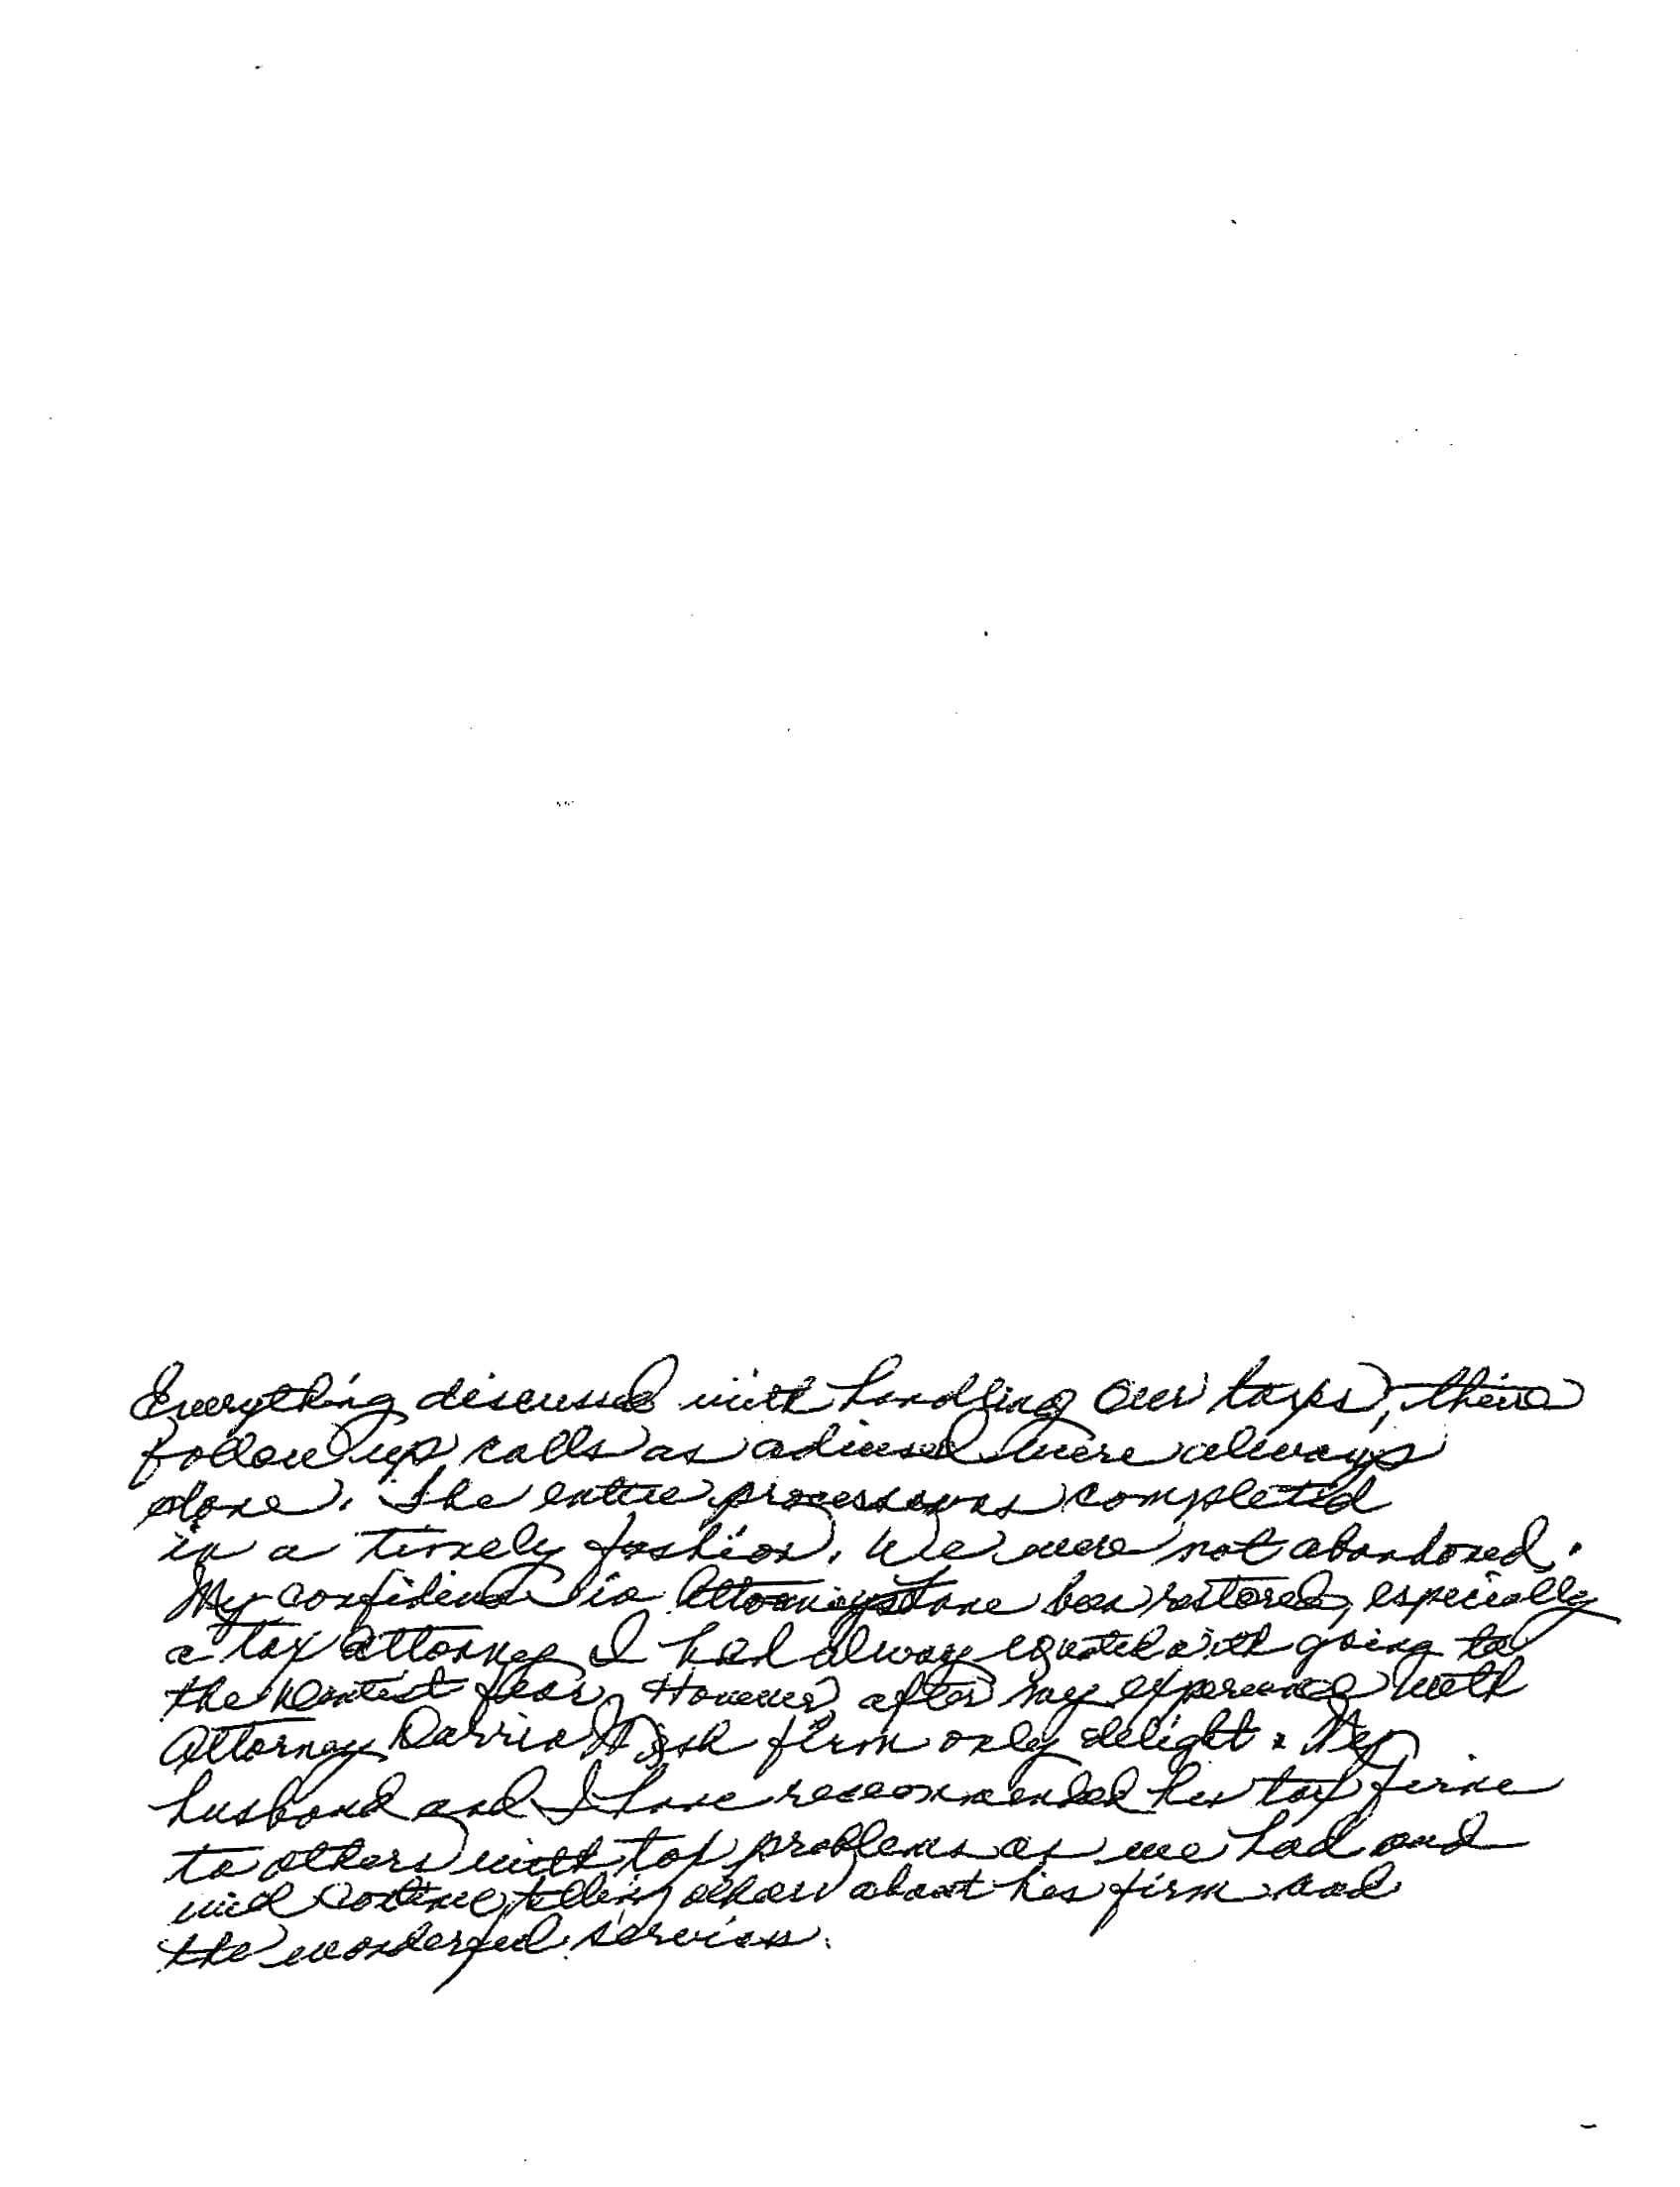 Everything discussed with handling our taxes, their
follow up calls as advised were always
done. The entire process was completed
in a timely fashion. We were not abandoned.
My confidence in Attorneys have been restored, especially
a tax attorney I had always equated with going to
the Dentist fear. However after my experience with
Attorney Darrin Mish firm only delight. My
husband and I have recommended his tax firm
to others with tax problems as we had and
will continue telling others about his firm and
the wonderful services.